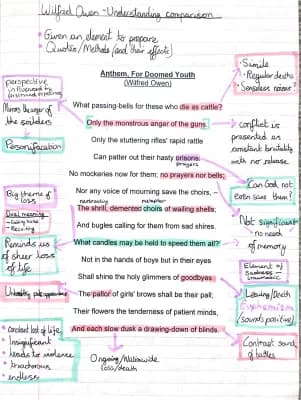 Wilfred Owen - Understanding comparison
• Given an element to prepare
• Quotes/Methods (and their effects)
Anthem, For Doomed Youth
(Wilfred Owen)
What passing-bells for these who die as cattle?
Only the monstrous anger of the guns.
Only the stuttering rifles' rapid rattle
Can patter out their hasty orisons.
prayers
No mockeries now for them; no prayers nor bells;
Nor any voice of mourning save the choirs, –
metaphor
The shrill, demented choirs of wailing shells;
And bugles calling for them from sad shires.
What candles may be held to speed them all?
Not in the hands of boys but in their eyes
Shall shine the holy glimmers of goodbyes.
The pallor of girls' brows shall be their pall;
Their flowers the tenderness of patient minds,
And each slow dusk a drawing-down of blinds.
perspective
influenced by
Mirrors the anger of
the soldiers
Personification
Big theme of
loss
Dual meaning
Reminds us
of sheer loss
of life
• constant lost of life
• Insignificant
• leads to violence
• endless
Ongoing/Nationwide
loss/death
• Simile
• Regular deaths
• Senseless
conflict is
presented as
constant brutality
with no release.
Can God, not
even save them?
Not significant
no need
of memory
Element of
sadness
Leaving/Death
Euphemism
(sounds positive)
Contrast sound
of battles